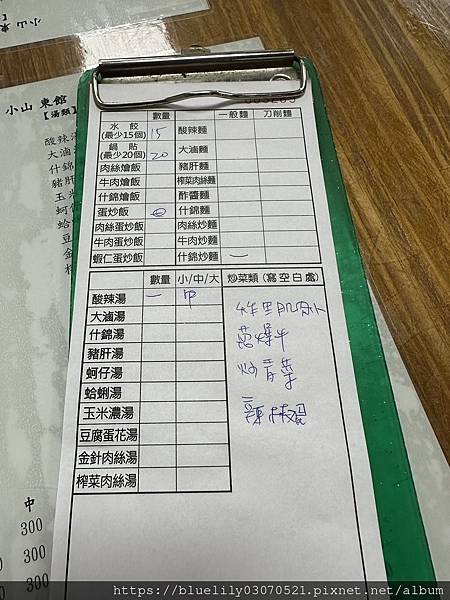 小山東
小山東館
【湯類】
酸辣湯
大滷
什錦
豬肝
玉米
蚵仔
蛤
豆
中
300
300
300
數量 一般麵 刀削麵
水餃(最少15個) 15 酸辣麵
鍋貼(最少20個) 20 大滷麵
肉絲燴飯 豬肝麵
牛肉燴飯 榨菜肉絲麵
什錦燴飯 酢醬麵
蛋炒飯 什錦麵
肉絲蛋炒飯 肉絲炒麵
牛肉蛋炒飯 牛肉炒麵
蝦仁蛋炒飯 什錦炒麵 一
數量 小/中/大 炒菜類(寫空白處)
酸辣湯 一 中
大滷湯
什錦湯
豬肝湯
蚵仔湯
蛤蜊湯
玉米濃湯
豆腐蛋花湯
金針肉絲湯
榨菜肉絲湯
炸里肌
蔥爆牛
炒青菜
辣椒
https://bluelily03070521.pixnet.net/album